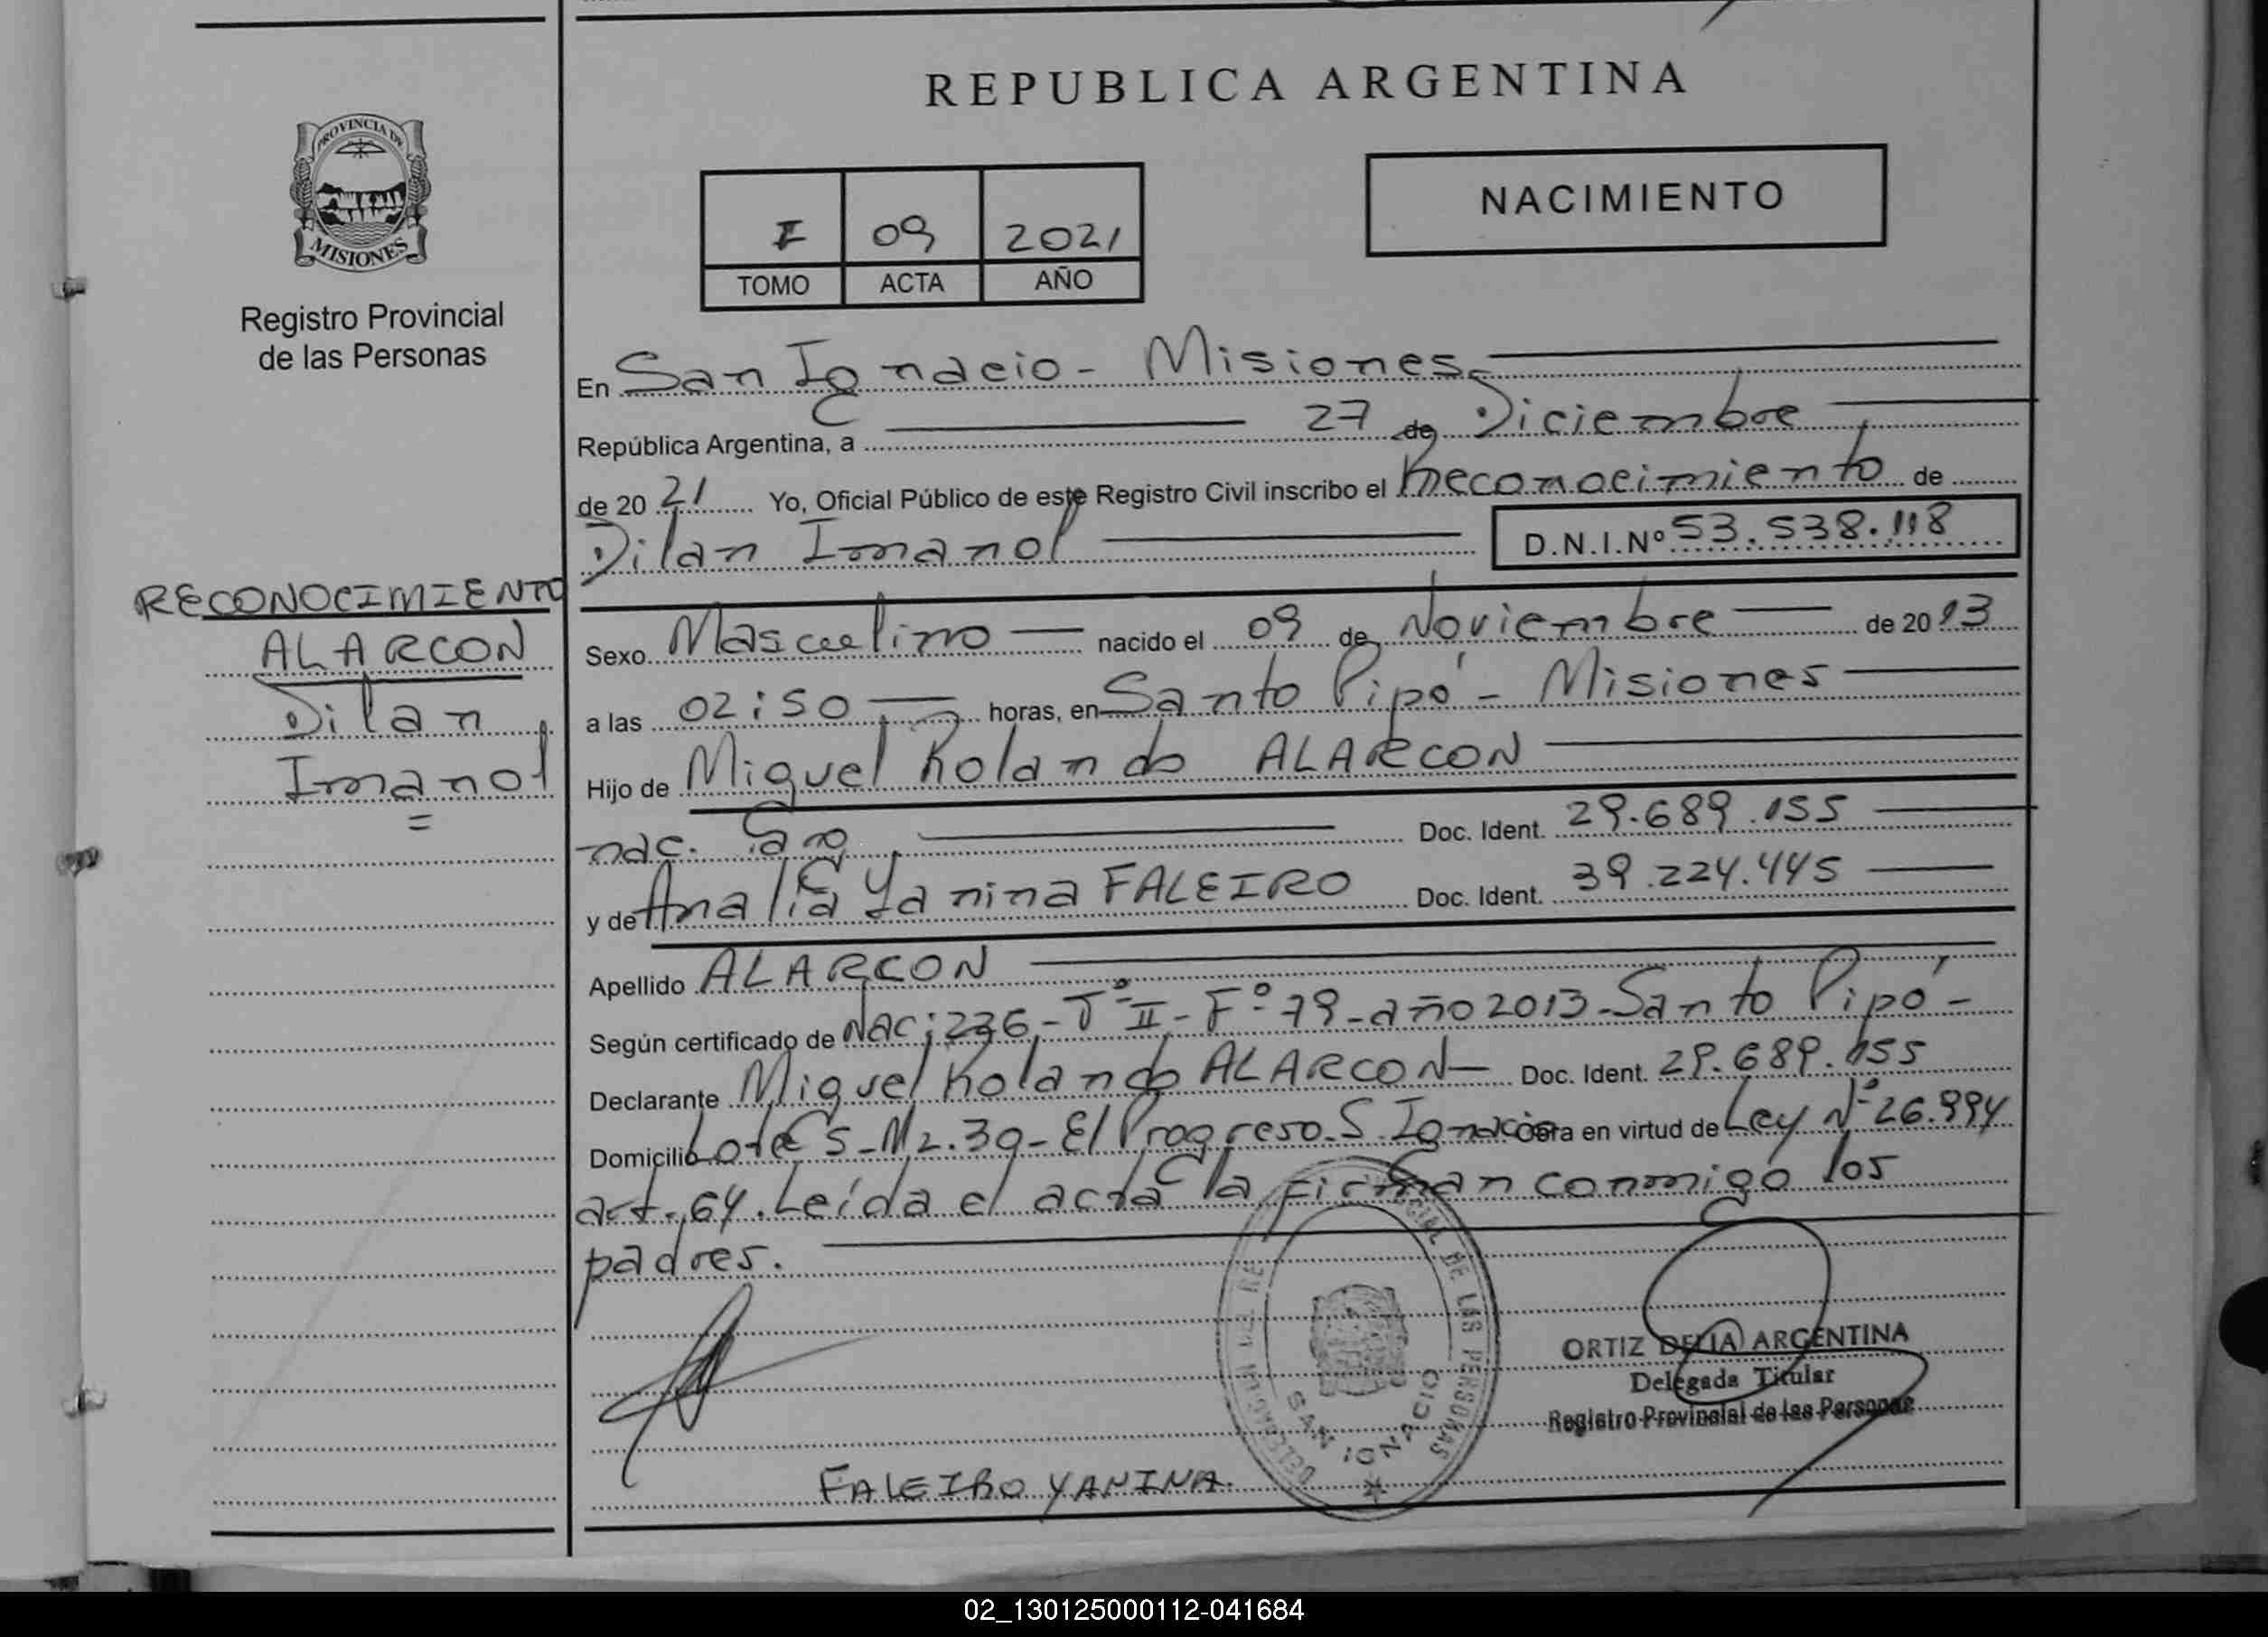 REPUBLICA ARGENTINA
PROVINCIA DE
MISIONES
Registro Provincial
de las Personas
I 09 2021
TOMO ACTA AÑO
NACIMIENTO
En San Ignacio - Misiones
República Argentina, a 27 de Diciembre
de 20 21 Yo, Oficial Público de este Registro Civil inscribo el Reconocimiento de
Dilan Imanol D.N.I.Nº 53.538.118
RECONOCIMIENTO
ALARCON
Dilan
Imanol
Sexo Masculino nacido el 09 de Noviembre de 20 13
a las 02:50 horas, en Santo Pipó - Misiones
Hijo de Miguel Rolando ALARCON
nac. Doc. Ident. 29.689.155
y de Analía Yanina FALEIRO Doc. Ident. 39.224.445
Apellido ALARCON
Según certificado de Nac: 236 - Tº II - Fº 79 - año 2013 - Santo Pipó -
Declarante Miguel Rolando ALARCON Doc. Ident. 29.689.155
Domicilio Lote 5 - Mz. 39 - El Progreso - S. Ignacio Obra en virtud de Ley Nº 26.994
art. 64. Leída el acta la firman conmigo los
padres.
DE LAS PERSONAS
SAN IGNACIO
ORTIZ DELIA ARGENTINA
Delegada Titular
Registro Provincial de las Personas
FALEIRO YANINA.
02_130125000112-041684